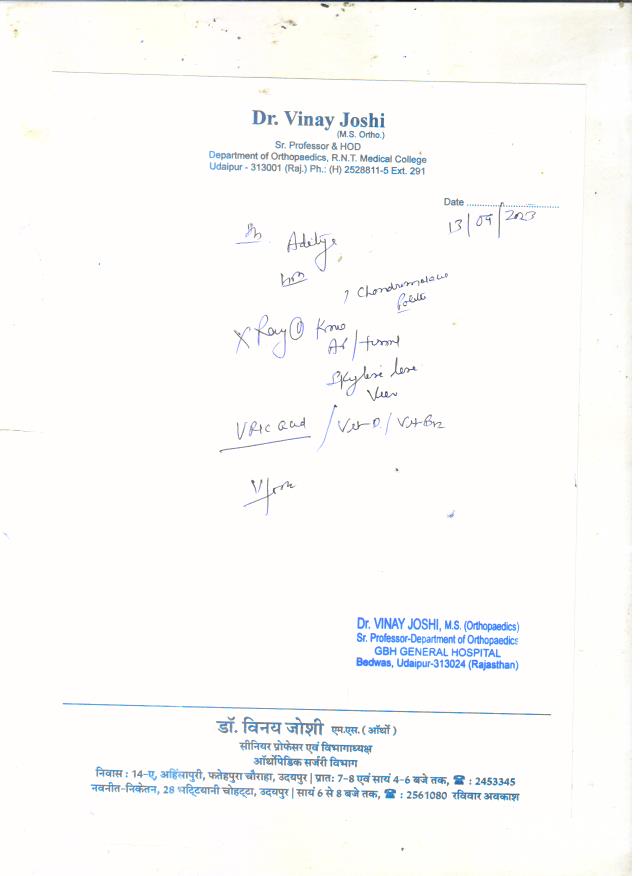 Dr. Vinay Joshi
(M.S. Ortho.)
Sr. Professor & HOD
Department of Orthopaedics, R.N.T. Medical College
Udaipur - 313001 (Raj.) Ph.: (H) 2528811-5 Ext. 291
Date ..................................
13/09/2023
Aditya
? Chondromalacia
X Ray Knee
AP/
Skyline
View
Uric acid / Vit-D / Vit-B12
Dr. VINAY JOSHI, M.S. (Orthopaedics)
Sr. Professor-Department of Orthopaedics
GBH GENERAL HOSPITAL
Bedwas, Udaipur-313024 (Rajasthan)
डॉ. विनय जोशी एम.एस. ( ऑर्थो )
सीनियर प्रोफेसर एवं विभागाध्यक्ष
ऑर्थोपेडिक सर्जरी विभाग
निवास : 14-ए, अहिंसापुरी, फतेहपुरा चौराहा, उदयपुर | प्रातः 7-8 एवं सायं 4-6 बजे तक, ☎ : 2453345
नवनीत-निकेतन, 28 भट्टियानी चोहट्टा, उदयपुर | सायं 6 से 8 बजे तक, ☎ : 2561080 रविवार अवकाश